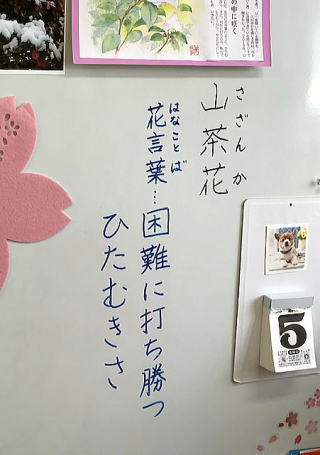 の中に咲く
さざんか
山茶花
はなことば
花言葉…困難に打ち勝つ
ひたむきさ
5